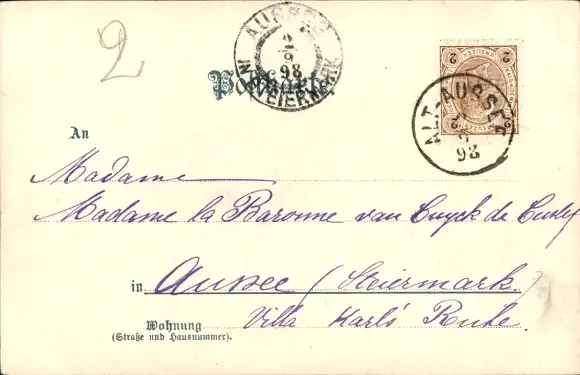 2
AUSSEE
2
9
98
IN STEIERMARK
Postkarte
2 2
ALT-AUSSEE
98
An
Madame
Madame la Baronne van Cuyck de
in Aussee (Steiermark)
Wohnung Villa Karls Ruhe.
(Straße und Hausnummer).